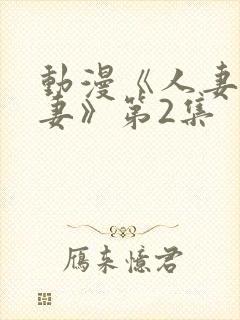 動漫《人妻
妻》第2集
雁来憶君